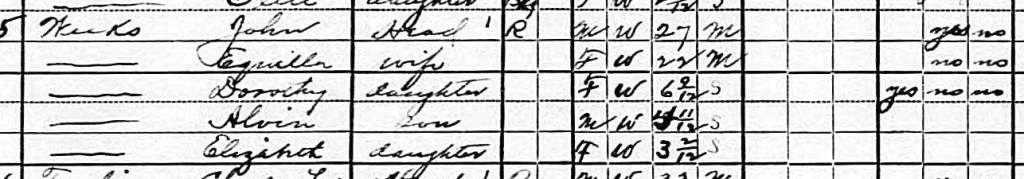 daughter F W /12 S
5 Weeks John Head 1 R M W 27 M yes no
—— wife F W 22 M no no
—— Dorothy daughter F W 6 9/12 S yes no no
—— Alvin son M W 11/12 S
—— Elizabeth daughter F W 3 2/12 S